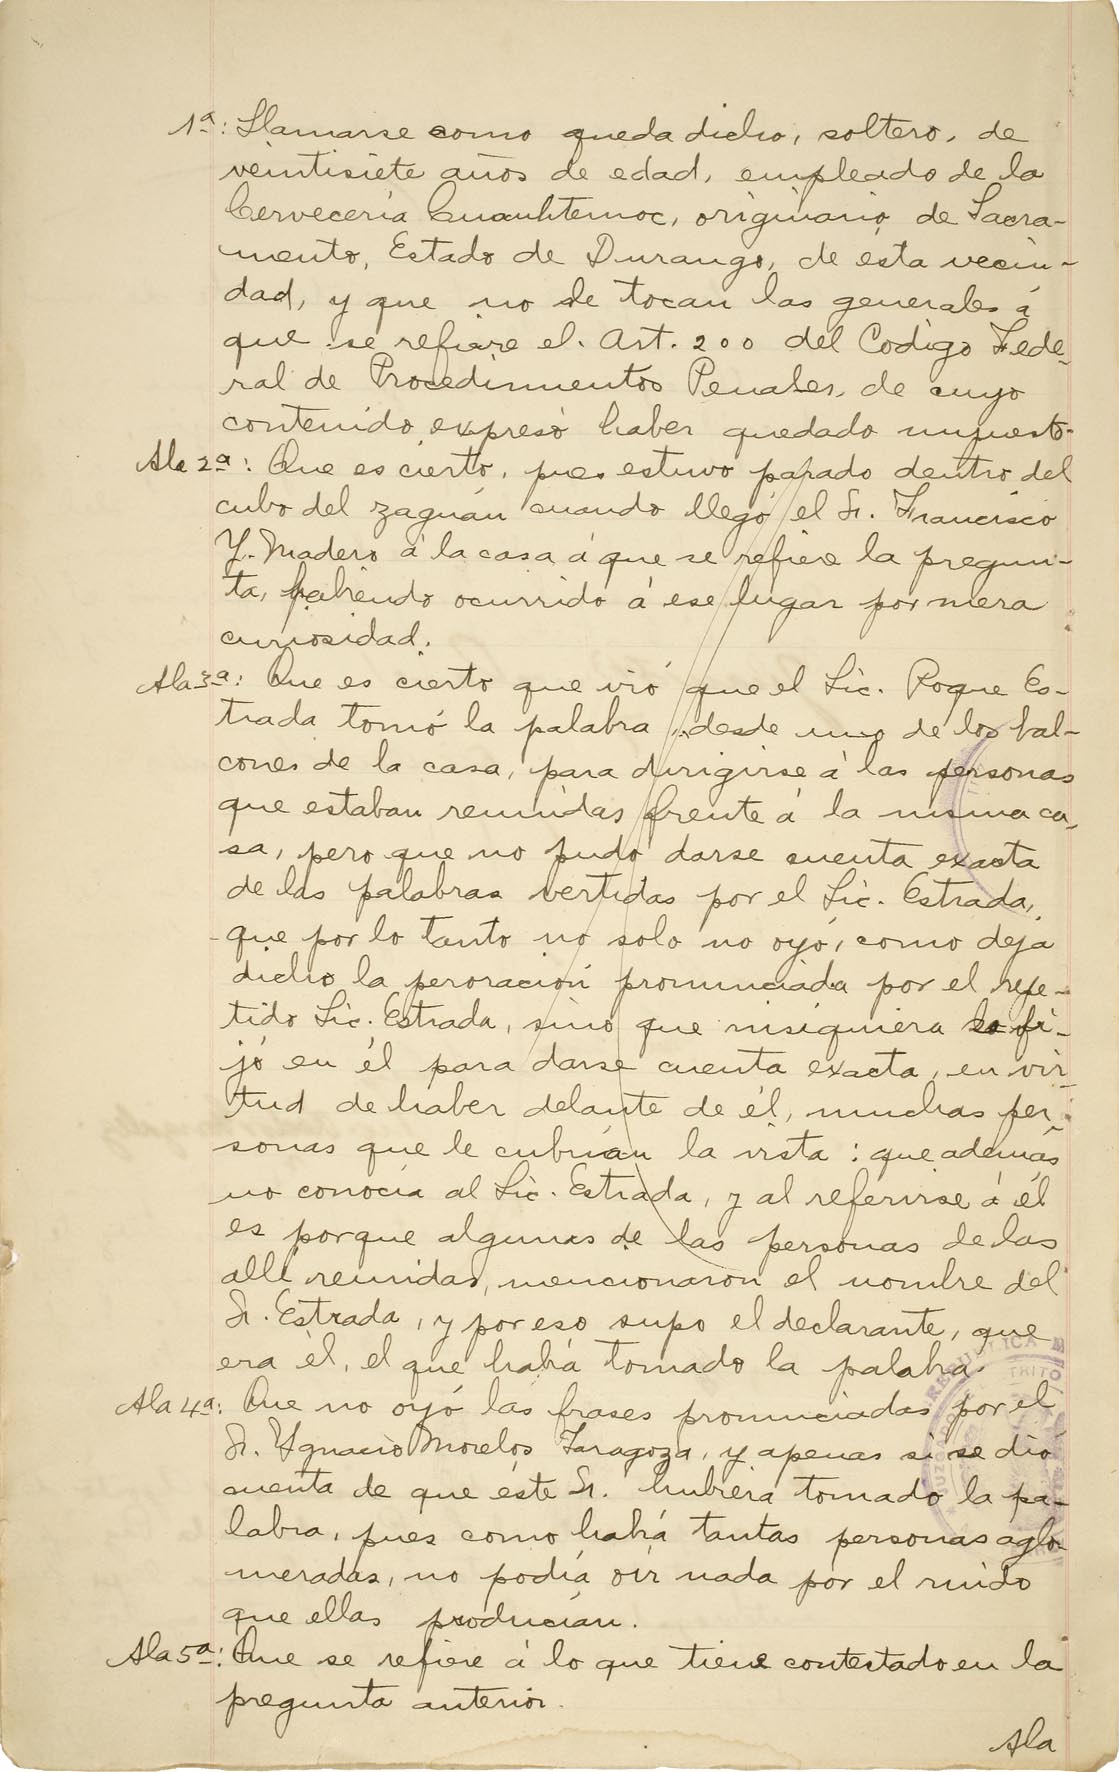 1ª: Llamarse como queda dicho, soltero, de
veintisiete años de edad, empleado de la
Cervecería Cuauhtemoc, originario de Sacra-
mento, Estado de Durango, de ésta vecin-
dad, y que no le tocan las generales á
que se refiere el. Art. 200 del Codigo Fede-
ral de Procedimientos Penales, de cuyo
contenido expresó haber quedado impuesto-
A la 2ª: Que es cierto, pues estuvo parado dentro del
cubo del zaguán cuando llegó el Sr. Francisco
Y. Madero á la casa á que se refiere la pregun-
ta, habiendo ocurrido á ese lugar por mera
curiosidad.
A la 3ª: Que es cierto que vió que el Lic. Roque Es-
trada tomó la palabra, desde uno de los bal-
cones de la casa, para dirigirse á las personas
que estaban reunidas frente á la misma ca-
sa, pero que no pudo darse cuenta exacta
de las palabras vertidas por el Lic. Estrada,
que por lo tanto no solo no oyó, como deja
dicho la peroración pronunciada por el repe-
tido Lic. Estrada, sino que nisiquiera se fi-
jó en él para darse cuenta exacta, en vir-
tud de haber delante de él, muchas per-
sonas que le cubrían la vista: que además
no conocía al Lic. Estrada, y al referirse á él
es porque algunas de las personas de las
allí reunidas, mencionaron el nombre del
Sr. Estrada, y por eso supo el declarante, que
era él, el que había tomado la palabra.
A la 4ª: Que no oyó las frases pronunciadas por el
Sr. Ygnacio Morelos Zaragoza, y apenas si se dió
cuenta de que éste Sr. hubiera tomado la pa-
labra, pues como había tantas personas aglo-
meradas, no podía oír nada por el ruido
que ellas producían.
A la 5ª: Que se refiere á lo que tiene contestado en la
pregunta anterior.
A la